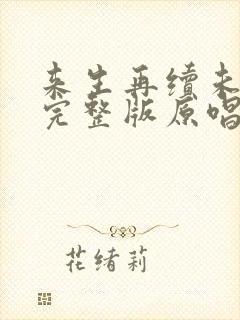 来生再续未
完整版原唱
花绪莉